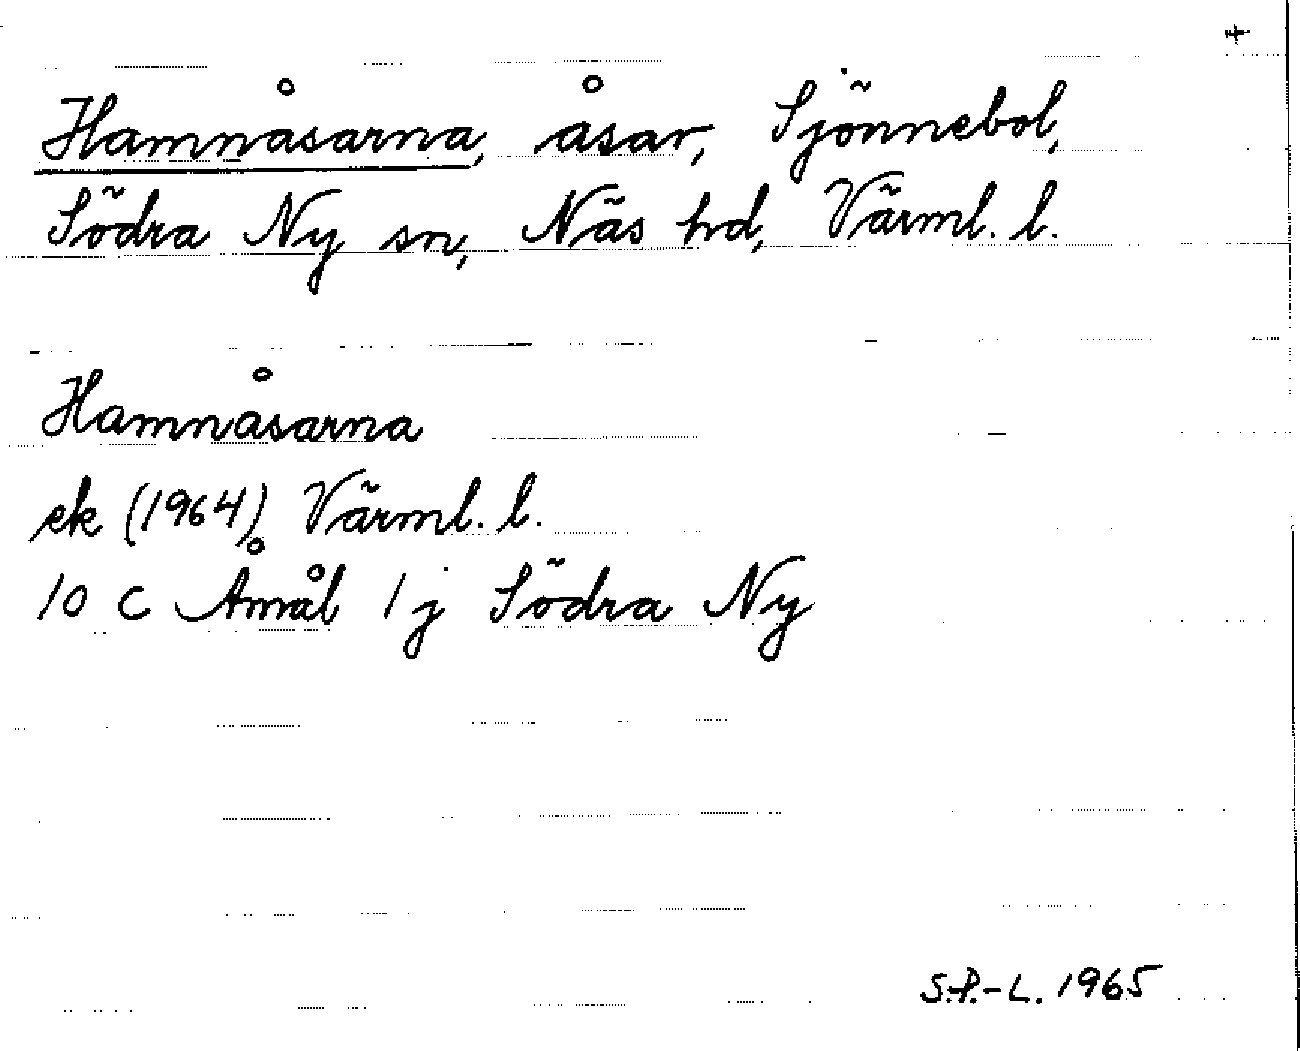 Hamnåsarna, åsar, Sjönnebol,
Södra Ny sn, Näs hd, Värml. l.
Hamnåsarna
ek (1964) Värml. l.
10 C Åmål 1 j Södra Ny
S.P.-L. 1965